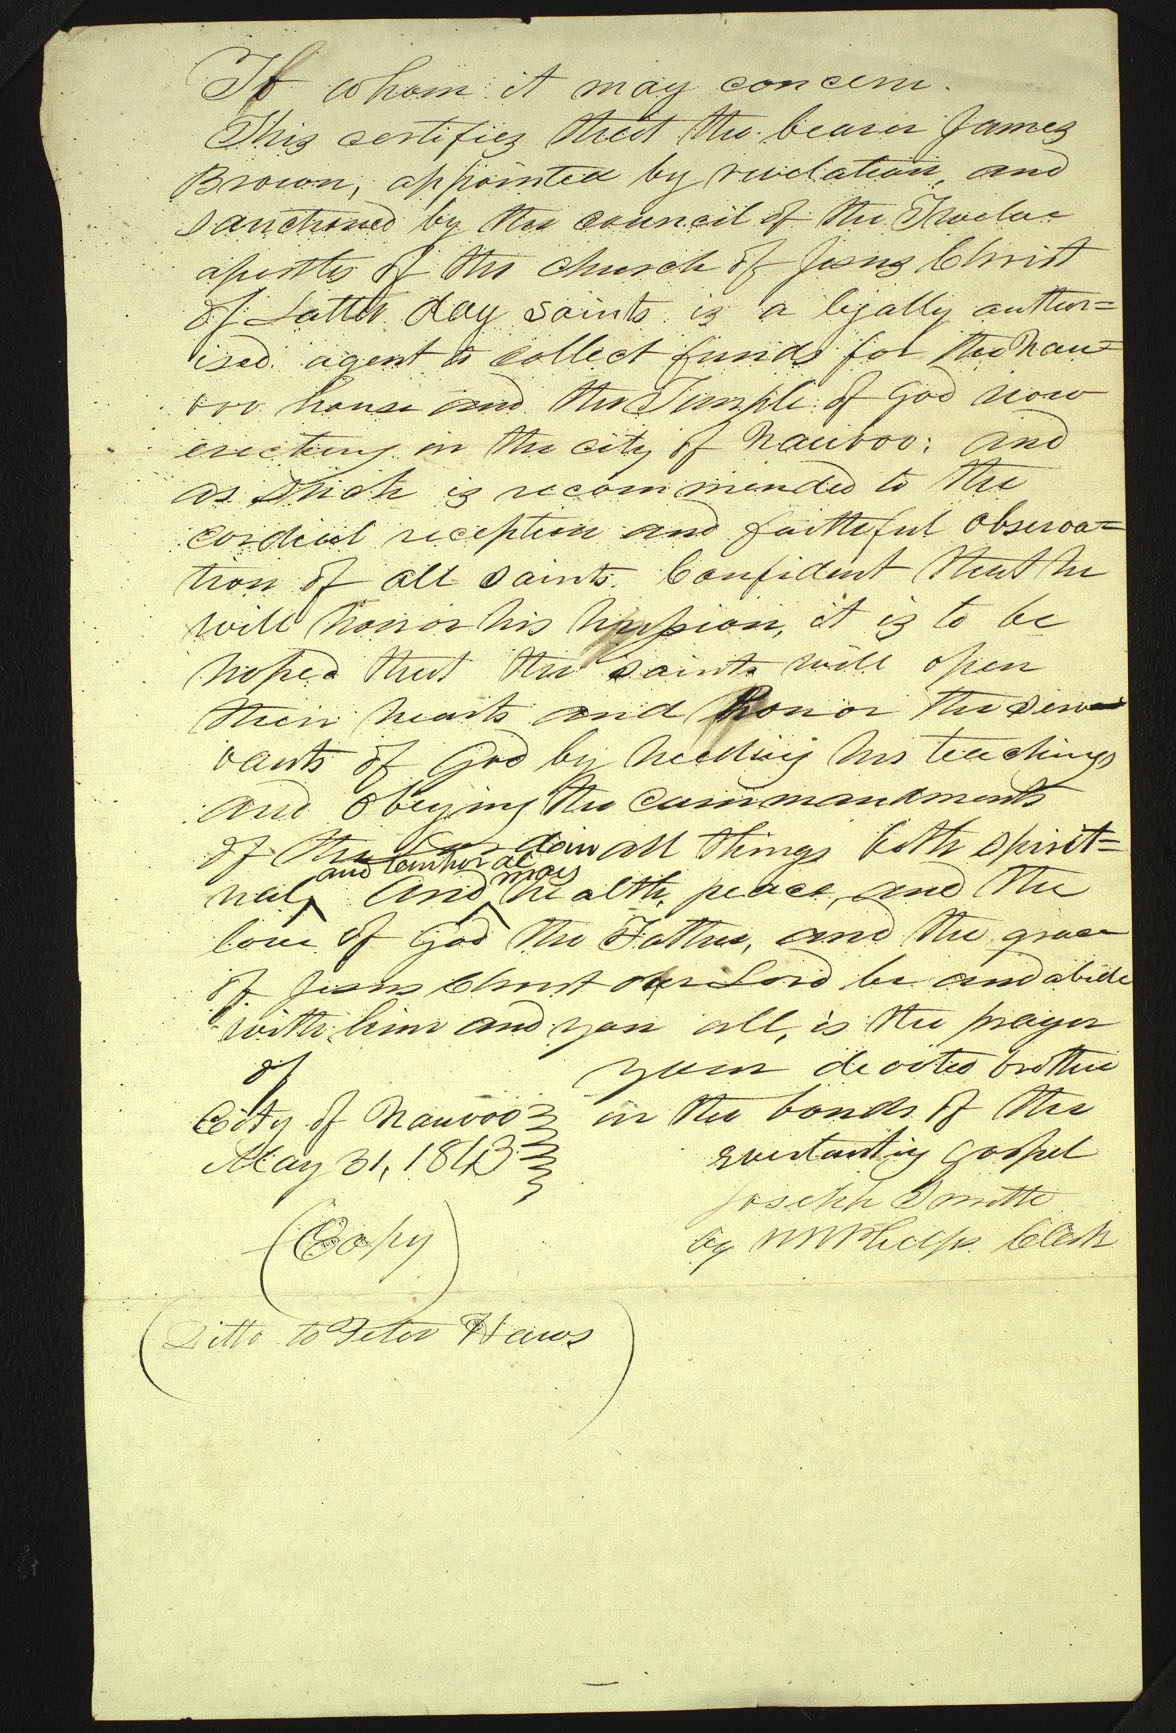 To whom it may concern.
This certifies that the bearer James
Brown, appointed by revelation, and
sanctioned by the council of the Twelve
apostles of the church of Jesus Christ
of Latter day saints is a legally author=
ised agent to collect funds for the Nau=
voo house and the Temple of God now
erecting in the city of Nauvoo; and
as such is recommended to the
cordial reception and faithful observa=
tion of all saints. Confident that he
will honor his mission, it is to be
hoped that the saints will open
their hearts and honor the ser
vants of God by heeding his teachings
and obeying the commandments
of the Lord in all things both spirit=
ual, and temporal And may health, peace, and the
love of God the Father, and the grace
of Jesus Christ our Lord be and abide
with him and you all, is the prayer
of your devoted brother
City of Nauvoo in the bonds of the
May 31, 1843 everlasting gospel
Joseph Smith
by W W Phelps Clerk
(Copy)
(Ditto to Peter Haws)